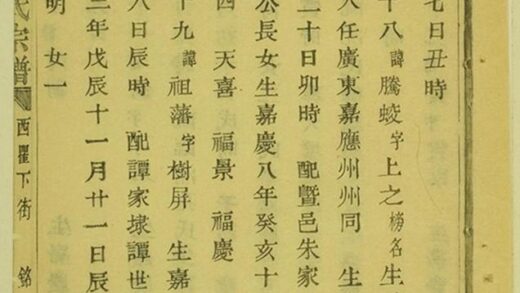 七日丑時
十八諱騰蛟字上之榜名生
人任廣東嘉應州州同 生
二十日卯時 配暨邑朱家
公長女生嘉慶八年癸亥十
四 天喜 福景 福慶
十九諱祖藩字樹屏 生嘉
八日辰時 配譚家埭譚世
三年戊辰十一月廿一日辰
明 女一
氏宗譜 西瞿下街 銘